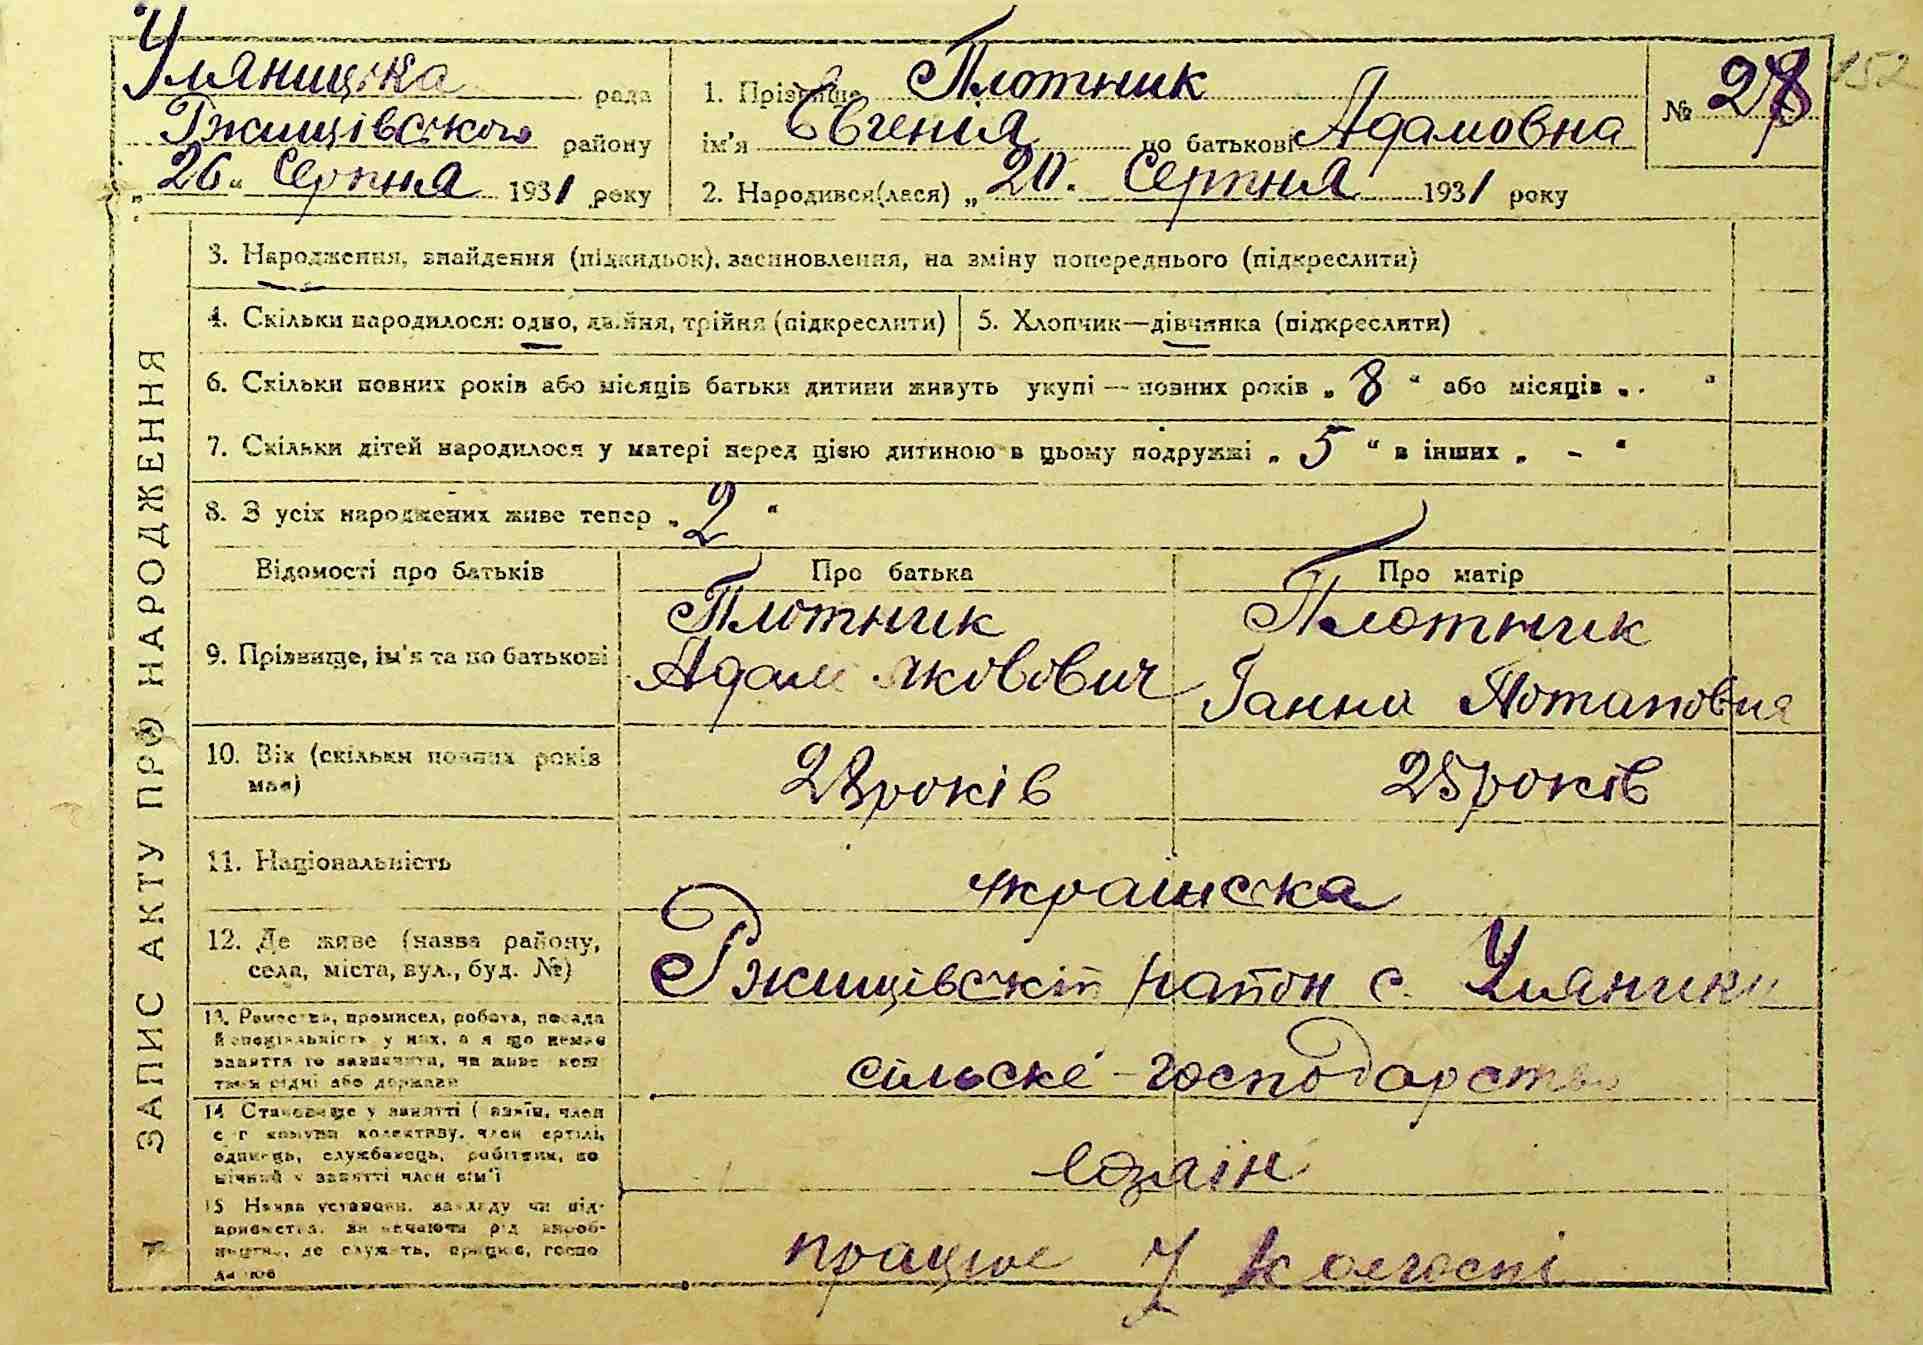 Уляницька рада
Ржищівського району
„ 26 " Серпня 1931 року
1. Прізвище Плотник
ім'я Євгенія по батькові Адамовна
2. Народився(лася) „ 20. Серпня 1931 року
№ 28
152
ЗАПИС АКТУ ПРО НАРОДЖЕННЯ
3. Народження, знайдення (підкидьок), засиновлення, на зміну попереднього (підкреслити)
4. Скільки народилося: одно, двійня, трійня (підкреслити)
5. Хлопчик—дівчинка (підкреслити)
6. Скільки повних років або місяців батьки дитини живуть укупі — повних років „ 8 " або місяців „ . "
7. Скільки дітей народилося у матері перед цією дитиною в цьому подружжі „ 5 " в інших „ - "
8. З усіх народжених живе тепер „ 2 "
Відомості про батьків
Про батька
Про матір
9. Прізвище, ім'я та по батькові
Плотник
Адам Якович
Плотник
Ганна Потаповна
10. Вік (скільки повних років
має)
28 років
25 років
11. Національність
українска
12. Де живе (назва району,
села, міста, вул., буд. №)
Ржищівскій район с. Уляники
13. Ремество, промисел, робота, посада
й спеціяльність у них, а якщо немає
заняття то зазначити, чи живе кош
тами рідні або держави
сільске-господарство
14 Становище у занятті ( хазяїн, член
с г комуни колективу, член артілі,
одинець, службовець, робітник, по
мічний у занятті член сім'ї
хозяїн
15 Назва установи, закладу чи під-
приємства, зазначаючи рід вироб-
ництва, де служить, працює, госпо
дарює
працює у колгоспі